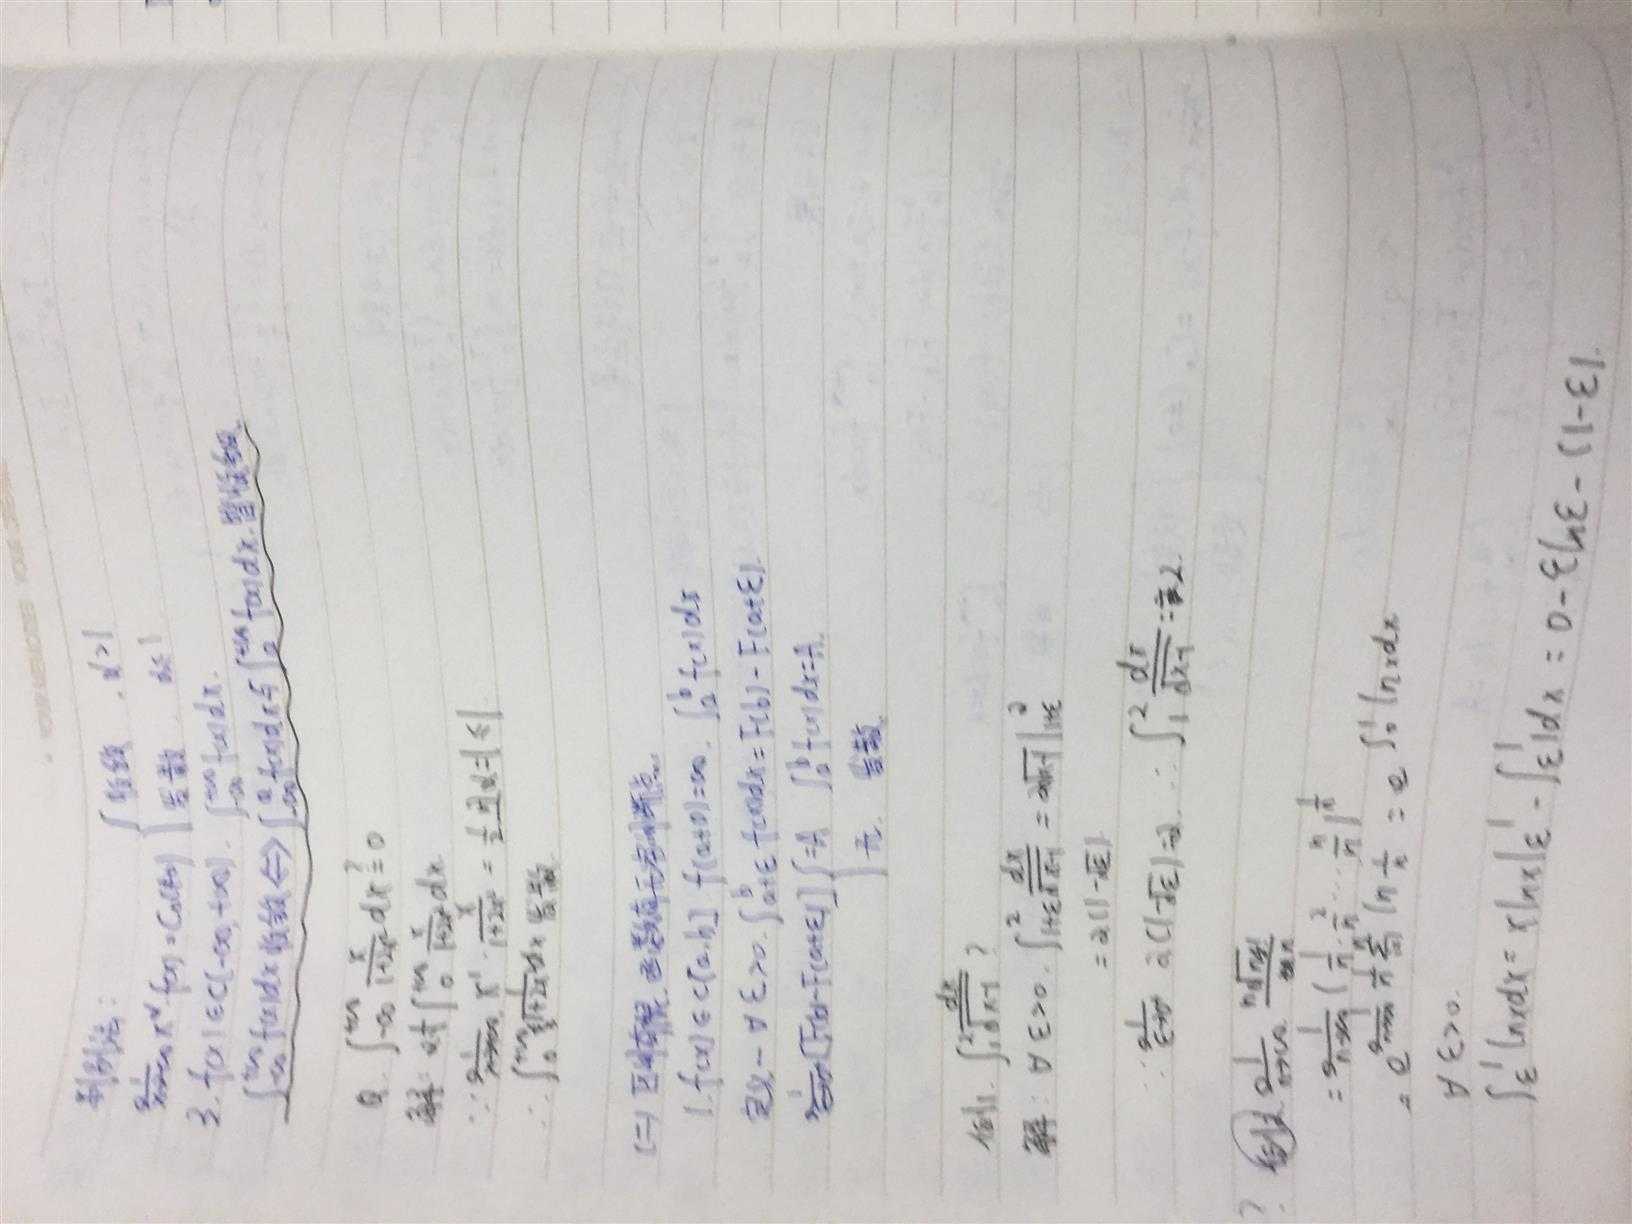 判别法:
lim x→∞ x^α f(x) = C₀(≠∞) { 收敛, α>1
发散, α≤1
3. f(x)∈C(-∞,+∞). ∫_{-∞}^{+∞} f(x)dx.
∫_{-∞}^{+∞} f(x)dx 收敛 ⇔ ∫_{-∞}^{a} f(x)dx与∫_{a}^{+∞} f(x)dx. 皆收敛.
Q. ∫_{-∞}^{+∞} x/(1+2x²) dx ?= 0
解: 对∫_{0}^{+∞} x/(1+2x²) dx.
∵ lim x→+∞ x¹· x/(1+2x²) = 1/2 且 α=1≤1
∴ ∫_{0}^{+∞} x/(1+2x²) dx 发散.
(二) 区间有限, 函数有无穷间断点.
1. f(x)∈C(a,b] f(a+0)=∞. ∫_a^b f(x)dx
定义- ∀ε>0. ∫_{a+ε}^b f(x)dx=F(b)-F(a+ε).
lim ε→0 [F(b)-F(a+ε)] { =A ∫_a^b f(x)dx=A
不. 发散.
例1. ∫_1^2 dx/√(x-1) ?
解: ∀ε>0. ∫_{1+ε}^2 dx/√(x-1) = 2√(x-1) |_{1+ε}^2
= 2(1-√ε).
∵ lim ε→0 2(1-√ε)=2. ∴ ∫_1^2 dx/√(x-1) = 2.
? 例2 lim n→∞ ⁿ√(n!)/n
= lim n→∞ (1/n · 2/n … n/n)^{1/n}
= e^{lim n→∞ 1/n Σ_{i=1}^n ln i/n} = e^{∫_0^1 lnxdx}
∀ε>0.
∫_ε^1 lnxdx = xlnx|_ε^1 - ∫_ε^1 1dx = 0-εlnε-(1-ε).